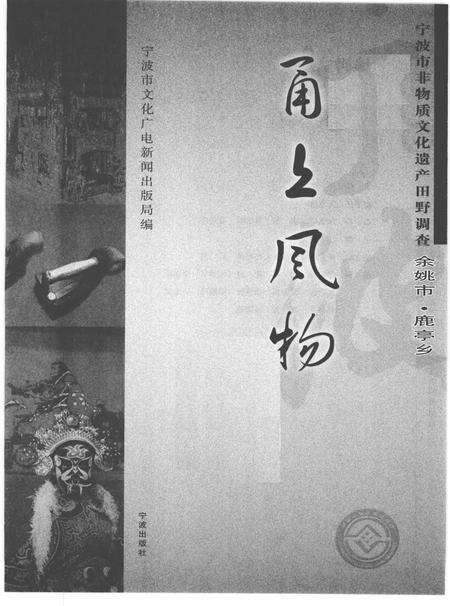 宁波市非物质文化遗产田野调查
余姚市·鹿亭乡
甬上风物
宁波市文化广电新闻出版局编
宁波出版社